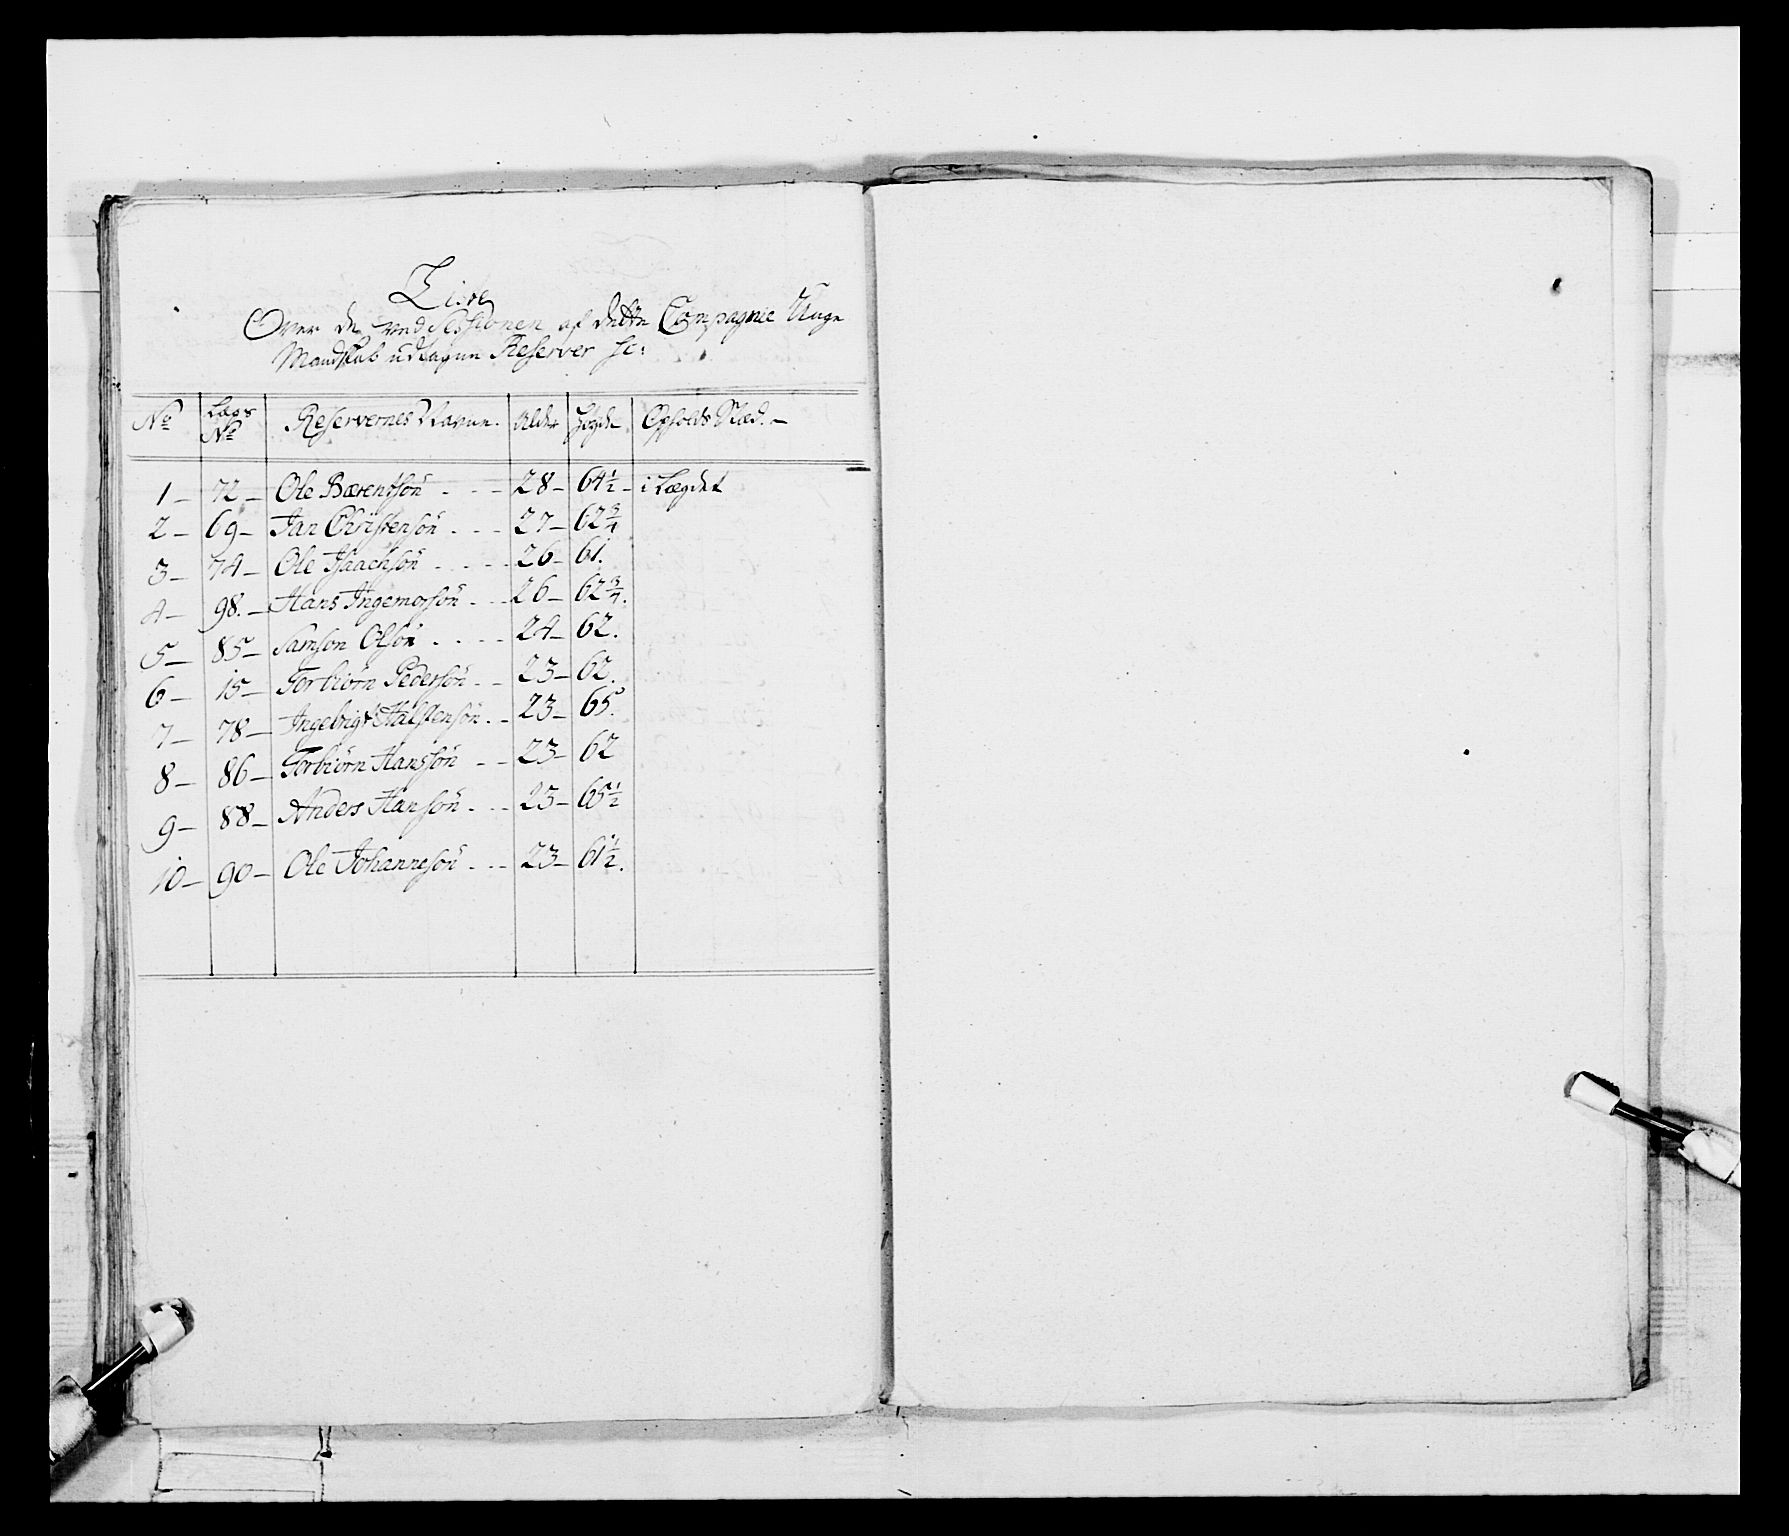 Liste
Over de ved Sessionen af dette Compagnie Unge
Mandskab udtagne Reserver sc:
No Lægs No Reservernes Navne. Alder Høyde Opholds Stæd. -
1 - 72 - Ole Bærentsøn - - - 28 - 64 1/2 - i Lægdet
2 - 69 - Jan Christensøn - - - 27 - 62 3/4
3 - 74 - Ole Isaachsøn - - - - 26 - 61.
4 - 98. - Hans Ingemorsøn - - - 26 - 62 3/4.
5 - 85 - Samson Olsøn - - - - 24 - 62.
6 - 15 - Torbiørn Pedersøn - - 23 - 62.
7 - 78 - Ingebrigt Halstensøn - - 23 - 65.
8 - 86 - Torbiørn Hanssøn - - 23 - 62
9 - 88 - Anders Hansøn - - - 23 - 65 1/2
10 - 90 - Ole Johannesøn - - - 23 - 61 1/2.